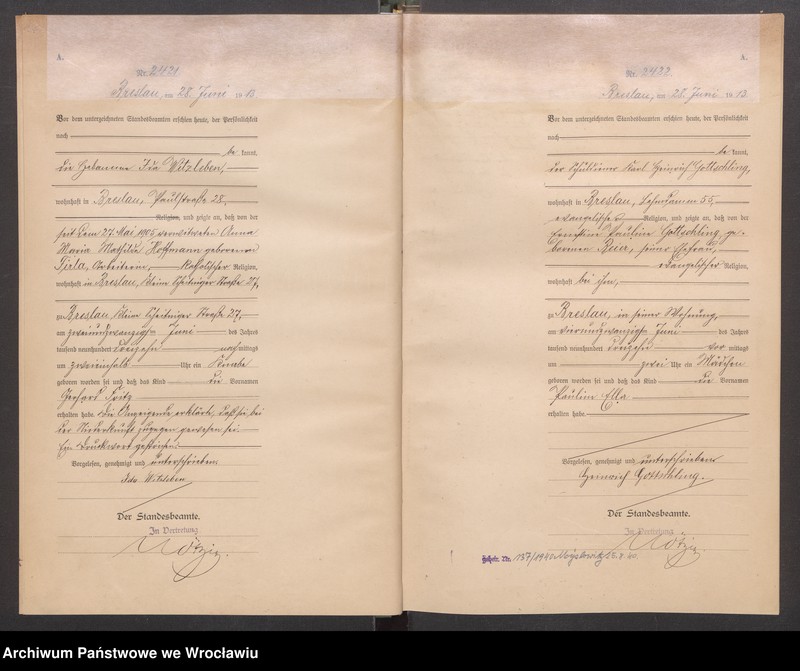 A.
Nr. 2421
Breslau, am 28. Juni 1913.
Vor dem unterzeichneten Standesbeamten erschien heute, der Persönlichkeit
nach
be kannt,
die Hebamme Ida Witzleben,
wohnhaft in Breslau, Paulstraße 28,
Religion, und zeigte an, daß von der
seit dem 27. Mai 1905 verwitweten Anna
Maria Mathilde Hoffmann geborenen
Pirla, Arbeiterin, katholischer Religion,
wohnhaft in Breslau, Klein Scheitniger Straße 27,
zu Breslau, Klein Scheitniger Straße 27,
am zweiundzwanzigsten Juni des Jahres
tausend neunhundert dreizehn nachmittags
um zweieinhalb Uhr ein Knabe
geboren worden sei und daß das Kind die Vornamen
Gerhard Fritz
erhalten habe. Die Anzeigende erklärte, daß sie bei
der Niederkunft zugegen gewesen sei.
Ein Druckwort gestrichen.
Vorgelesen, genehmigt und unterschrieben
Ida Witzleben
Der Standesbeamte.
In Vertretung
A.
Nr. 2422
Breslau, am 28. Juni 1913.
Vor dem unterzeichneten Standesbeamten erschien heute, der Persönlichkeit
nach
be kannt,
der Schuldiener Karl Heinrich Gottschling,
wohnhaft in Breslau, Lehmdamm 55,
evangelischer Religion, und zeigte an, daß von der
Pauline Gottschling, ge-
borenen Reier, seiner Ehefrau,
evangelischer Religion,
wohnhaft bei ihm,
zu Breslau, in seiner Wohnung,
am vierundzwanzigsten Juni des Jahres
tausend neunhundert dreizehn vor mittags
um zwei Uhr ein Mädchen
geboren worden sei und daß das Kind die Vornamen
Pauline Ella
erhalten habe.
Vorgelesen, genehmigt und unterschrieben
Heinrich Gottschling.
Der Standesbeamte.
In Vertretung
Nr. 137/1940
Archiwum Państwowe we Wrocławiu